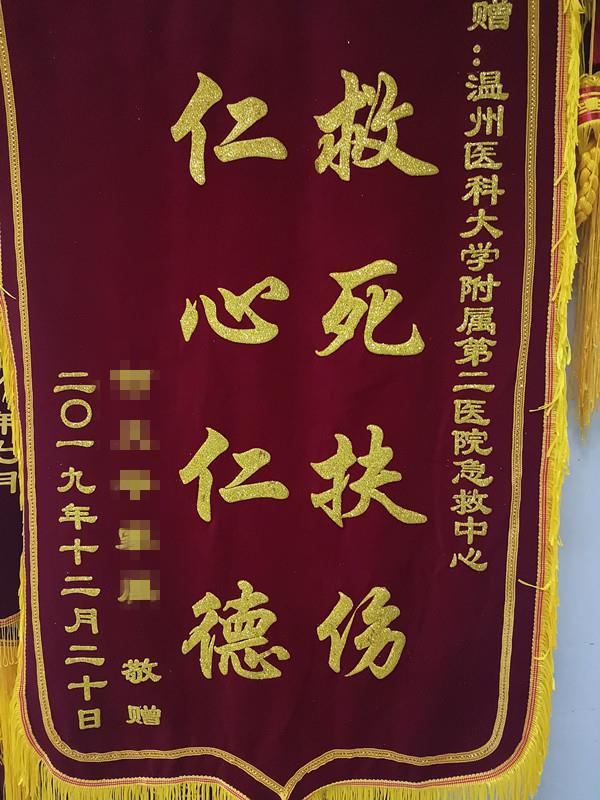 赠：温州医科大学附属第二医院急救中心
救死扶伤
仁心仁德
敬赠
二〇一九年十二月二十日
年七月